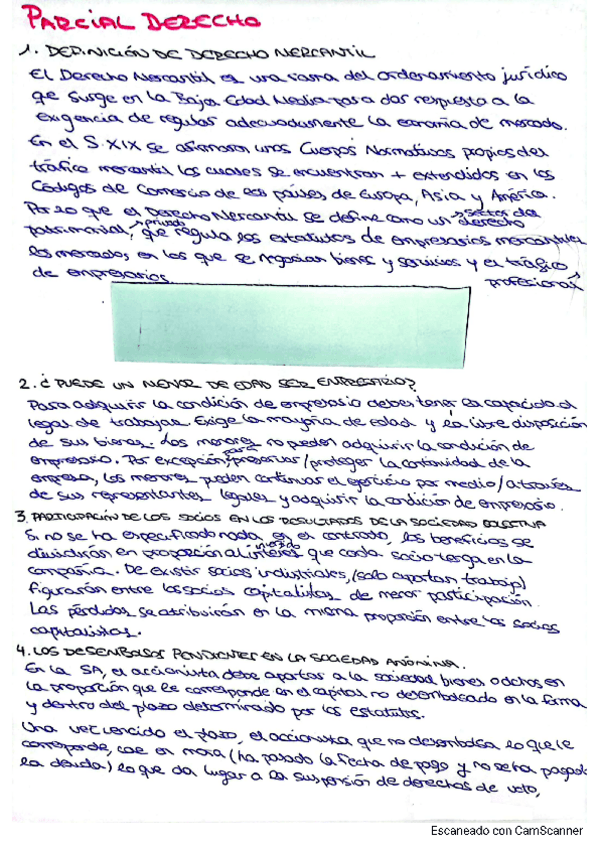 PARCIAL DERECHO
1. DEFINICIÓN DE DERECHO MERCANTIL
El Derecho Mercantil es una rama del ordenamiento jurídico
que surge en la Baja Edad Media para dar respuesta a la
exigencia de regular adecuadamente la economía de mercado.
En el S.XIX se afirmaron unos Cuerpos Normativos propios del
tráfico mercantil los cuales se encuentran + extendidos en los
Códigos de Comercio de los países, de Europa, Asia y América.
Por lo que el Derecho Mercantil se define como un → sector del derecho
patrimonial, → privado que regula los estatutos de empresarios mercantiles
los mercados, en los que se negocian bienes y servicios y el tráfico
de empresarios. profesional
2. ¿PUEDE UN MENOR DE EDAD SER EMPRESARIO?
Para adquirir la condición de empresario debes tener la capacidad
legal de trabajar. Exige la mayoría de edad y la libre disposición
de sus bienes. Los menores no pueden adquirir la condición de
empresario. Por excepción, para preservar/proteger la continuidad de la
empresa, los menores pueden continuar el ejercicio por medio/a través
de sus representantes legales y adquirir la condición de empresario.
3. PARTICIPACIÓN DE LOS SOCIOS EN LOS RESULTADOS DE LA SOCIEDAD COLECTIVA
Si no se ha especificado nada en el contrato, los beneficios se
dividirán en proporción al interés que cada socio tenga en la
compañía. De existir socios industriales, (solo aportan trabajo)
figurarán entre los socios capitalistas de menor participación.
Las pérdidas se atribuirán en la misma proporción entre los socios
capitalistas.
4. LOS DESEMBOLSOS PENDIENTES EN LA SOCIEDAD ANÓNIMA.
En la SA, el accionista debe aportar a la sociedad bienes o dchos en
la proporción que le corresponde en el capital no desembolsado en la forma
y dentro del plazo determinado por los estatutos.
Una vez vencido el plazo, el accionista que no desembolsa lo que le
corresponde, cae en mora (ha pasado la fecha de pago y no se ha pagado
la deuda) lo que da lugar a la suspensión de derechos de voto,
Escaneado con CamScanner